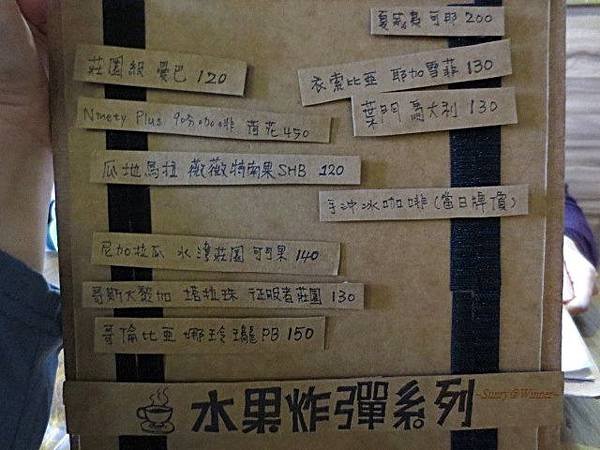 夏威夷 可那 200
莊園級 曼巴 120
衣索比亞 耶加雪菲 130
Ninety Plus 90分咖啡 荷花 450
葉門 馬大利 130
瓜地馬拉 薇薇特南果 SHB 120
手沖冰咖啡(當日牌價)
尼加拉瓜 水灣莊園 可可果 140
哥斯大黎加 塔拉珠 征服者莊園 130
哥倫比亞 娜玲瓏 PB 150
水果炸彈系列
~Sunry@Winner~